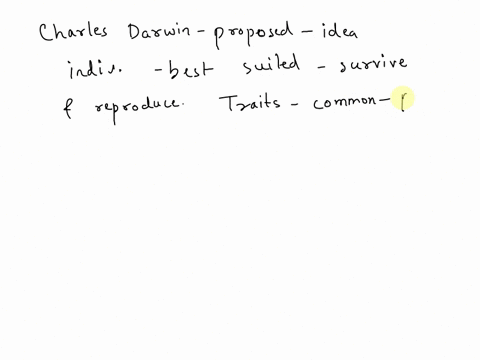 Charles Darwin - proposed - idea
indiv. - best suited - survive
& reproduce. Traits - common -